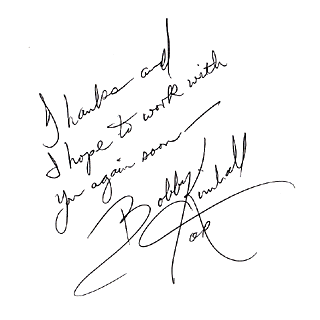 Thanks and
I hope to work with
you again soon —
Bobby Kimball